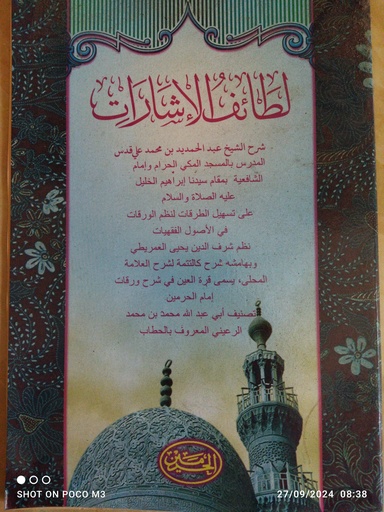 لطائف الإشارات
شرح الشيخ عبد الحميد بن محمد علي قدس
المدرس بالمسجد المكي الحرام وإمام
الشافعية بمقام سيدنا إبراهيم الخليل
عليه الصلاة والسلام
على تسهيل الطرقات لنظم الورقات
في الأصول الفقهيات
نظم شرف الدين يحيى العمريطي
وبهامشه شرح كالتتمة لشرح العلامة
المحلي، يسمى قرة العين في شرح ورقات
إمام الحرمين
تصنيف أبي عبد الله محمد بن محمد
الرعيني المعروف بالحطاب
الحرمين
SHOT ON POCO M3
27/09/2024 08:38